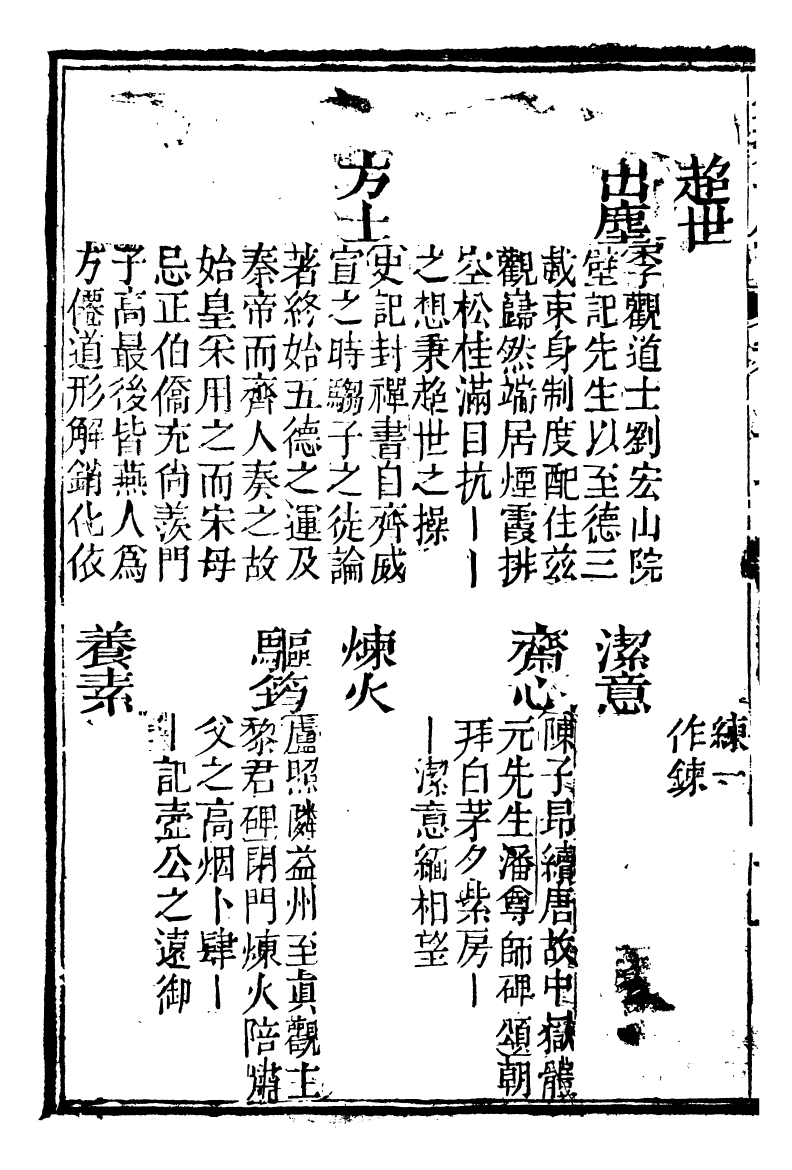 超世
出塵
李觀道士劉宏山院
壁記先生以至德三
載束身制度配住兹
觀巋然端居煙霞排
空松桂滿目抗丨丨
之想秉超世之操
方士
史記封禪書自齊威
宣之時騶子之徒論
著終始五德之運及
秦帝而齊人奏之故
始皇采用之而宋毋
忌正伯僑充尚羨門
子高最後皆燕人爲
方僊道形解銷化依
練一
作鍊
潔意
齋心
陳子昂續唐故中嶽體
元先生潘尊師碑頌朝
拜白茅夕紫房丨
丨潔意緬相望
煉火
驅筠
盧照隣益州至真觀主
黎君碑閉門煉火陪嘯
父之高烟卜肆丨
丨記壺公之遠御
養素